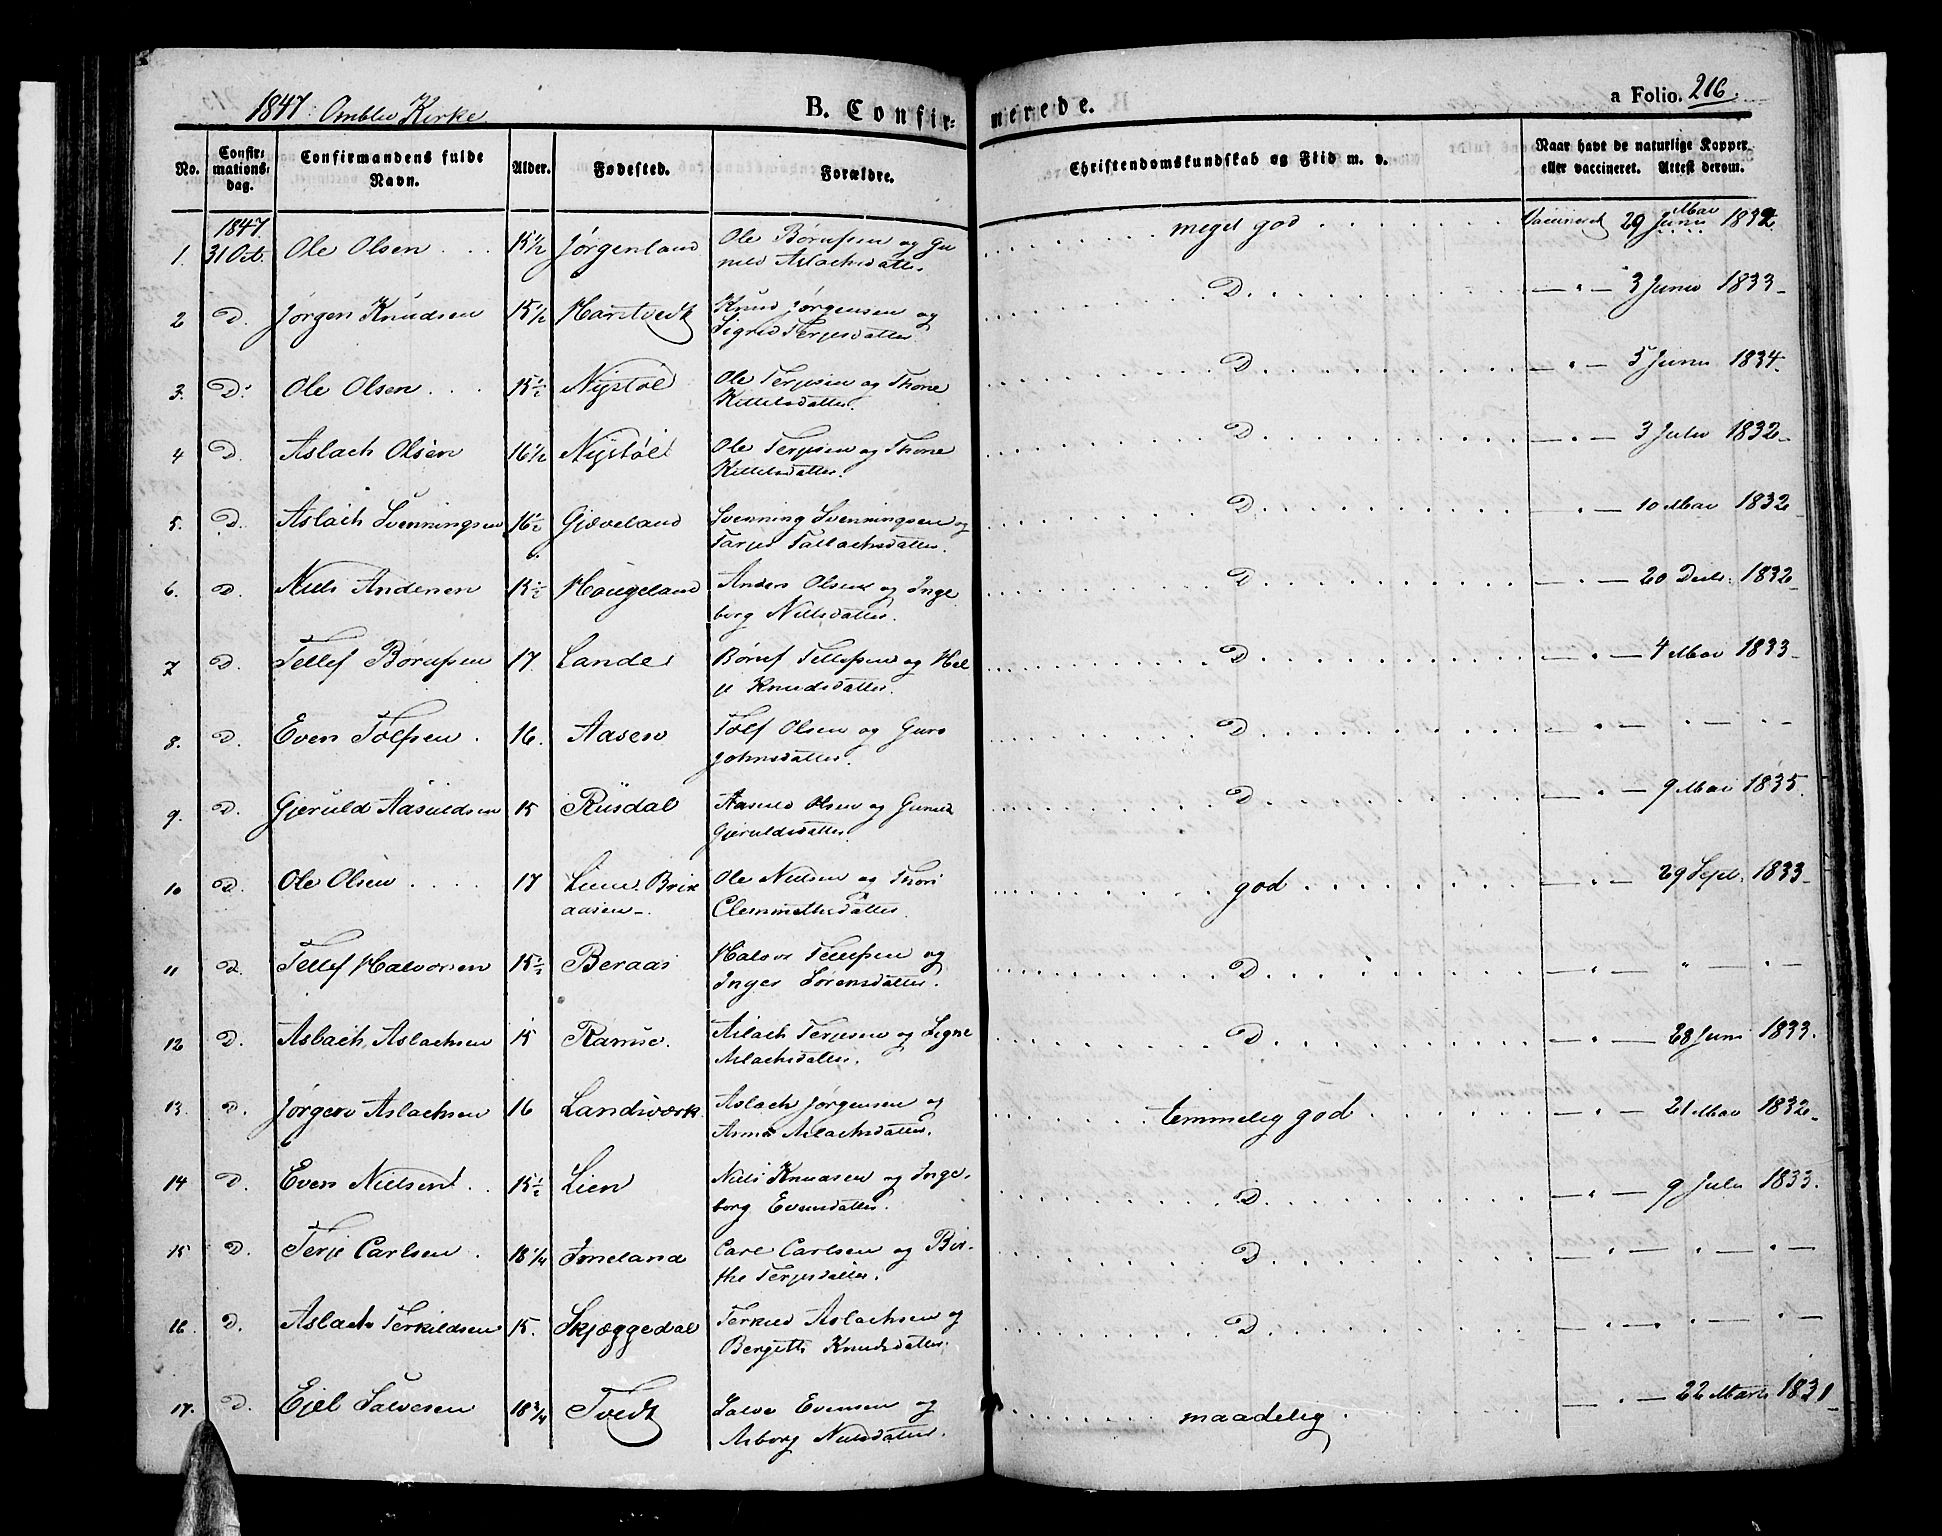 1847. Omblis Kirke
B. Confir-
merede.
a Folio. 216.
No.
Confir-
mations-
dag.
Confirmandens fulde
Navn.
Alder.
Fødested.
Forældre.
Christendomskundskab og Flid m. v.
Naar havt de naturlige Kopper
eller vaccineret. Attest derom.
1847
1. 31 Oct. Ole Olsen 15 1/2 Jørgenland Ole Børufsen og Gu
nild Aslachsdatter. meget god Vaccineret 29 Mai 1832
2 D. Jørgen Knudsen 15 1/2 Hartvedt Knud Jørgensen og
Sigrid Terjesdatter D. — " — 3 Juni 1833
3. D. Ole Olsen 15 1/2 Nystøl Ole Terjesen og Thone
Kittelsdatter. D. — " — 5 Juni 1834.
4 D. Aslach Olsen 16 1/2 Nystøl Ole Terjesen og Thone
Kittelsdatter. D. — " — 3 Juli 1832
5. D. Aslach Svenningsen 16 1/2 Gjæveland Svenning Svenningsen og
Tarjer Tallachsdatter. D — " — 10 Mai 1832
6. D. Niels Andersen 15 1/2 Haugeland Anders Olsen og Inge
borg Nilsdatter. D — " — 20 Decbr. 1832
7 D. Tellef Børufsen 17 Lande Børuf Tellefsen og Hel
je Knudsdatter. D. — " — 4 Mai 1833
8. D. Even Tolfsen 16. Aasen Tolf Olsen og Guro
Johnsdatter. D — " — " — " —
9. D. Gjeruld Aasuldsen 15 Risdal Aasuld Olsen og Gunild
Gjeruldsdatter. D. — " — 9 Mai 1835.
10 D. Ole Olsen 17 Liene Brix
aasen Ole Nielsen og Thori
Clemmetsdatter. god — " — 29 Sept. 1833
11 D. Tellef Halvorsen 15 1/2 Beraas Halvor Tellefsen og
Inger Sørensdatter. D — " — " — " —
12 D. Aslach Aslachsen 15 Ramse. Aslach Terjesen og Signe
Aslachsdatter. D — " — 28 Juni 1833.
13. D. Jørgen Aslachsen 16 Landsværk Aslach Jørgensen og
Anne Aslachsdatter. temmelig god — " — 21 Mai 1832
14 D. Even Nielsen 15 1/2 Lien Niels Knudsen og Inge-
borg Evensdatter. D — " — 9 Juli 1833.
15 D. Terje Carlsen 18 1/4 Imeland Carl Carlsen og Bir-
the Terjesdatter. D — " — " — " —
16. D. Aslach Terkildsen 15. Skjæggedal Terkild Aslachsen og
Bergitte Knudsdatter. D — " — " — " —
17. D. Ejel Salvesen 18 3/4 Tvedt Salve Evensen og
Asborg Nielsdatter. maadelig — " — 22 Marts 1831